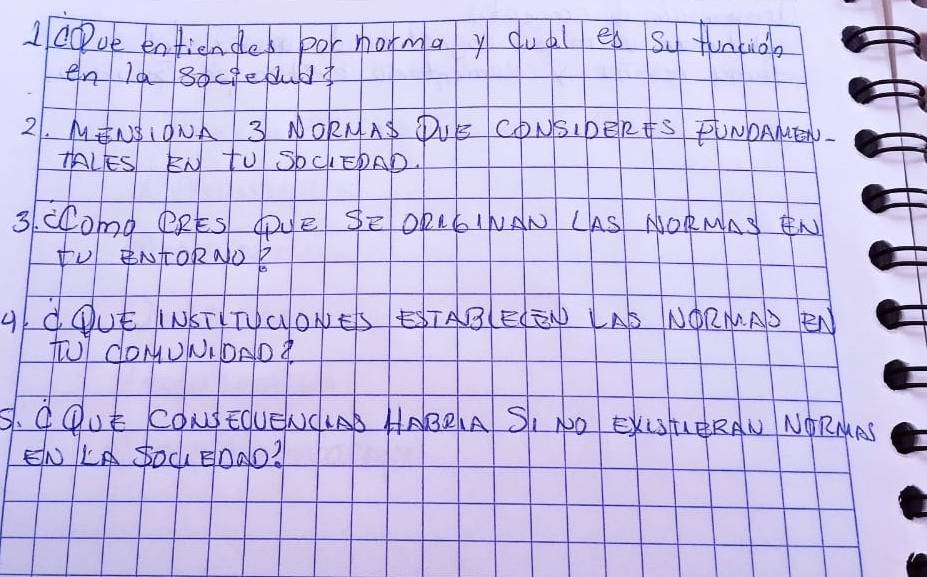 1. ¿Que entiendes por norma y cual es su función
en la sociedad?
2. MENSIONA 3 NORMAS QUE CONSIDERES FUNDAMEN-
TALES EN TU SOCIEDAD.
3. ¿Como CRES QUE SE ORIGINAN LAS NORMAS EN
TU ENTORNO?
4. ¿QUE INSTITUCIONES ESTABLECEN LAS NORMAS EN
TU COMUNIDAD?
5. ¿QUE CONSECUENCIAS HABRIA SI NO EXISTIERAN NORMAS
EN LA SOCIEDAD?